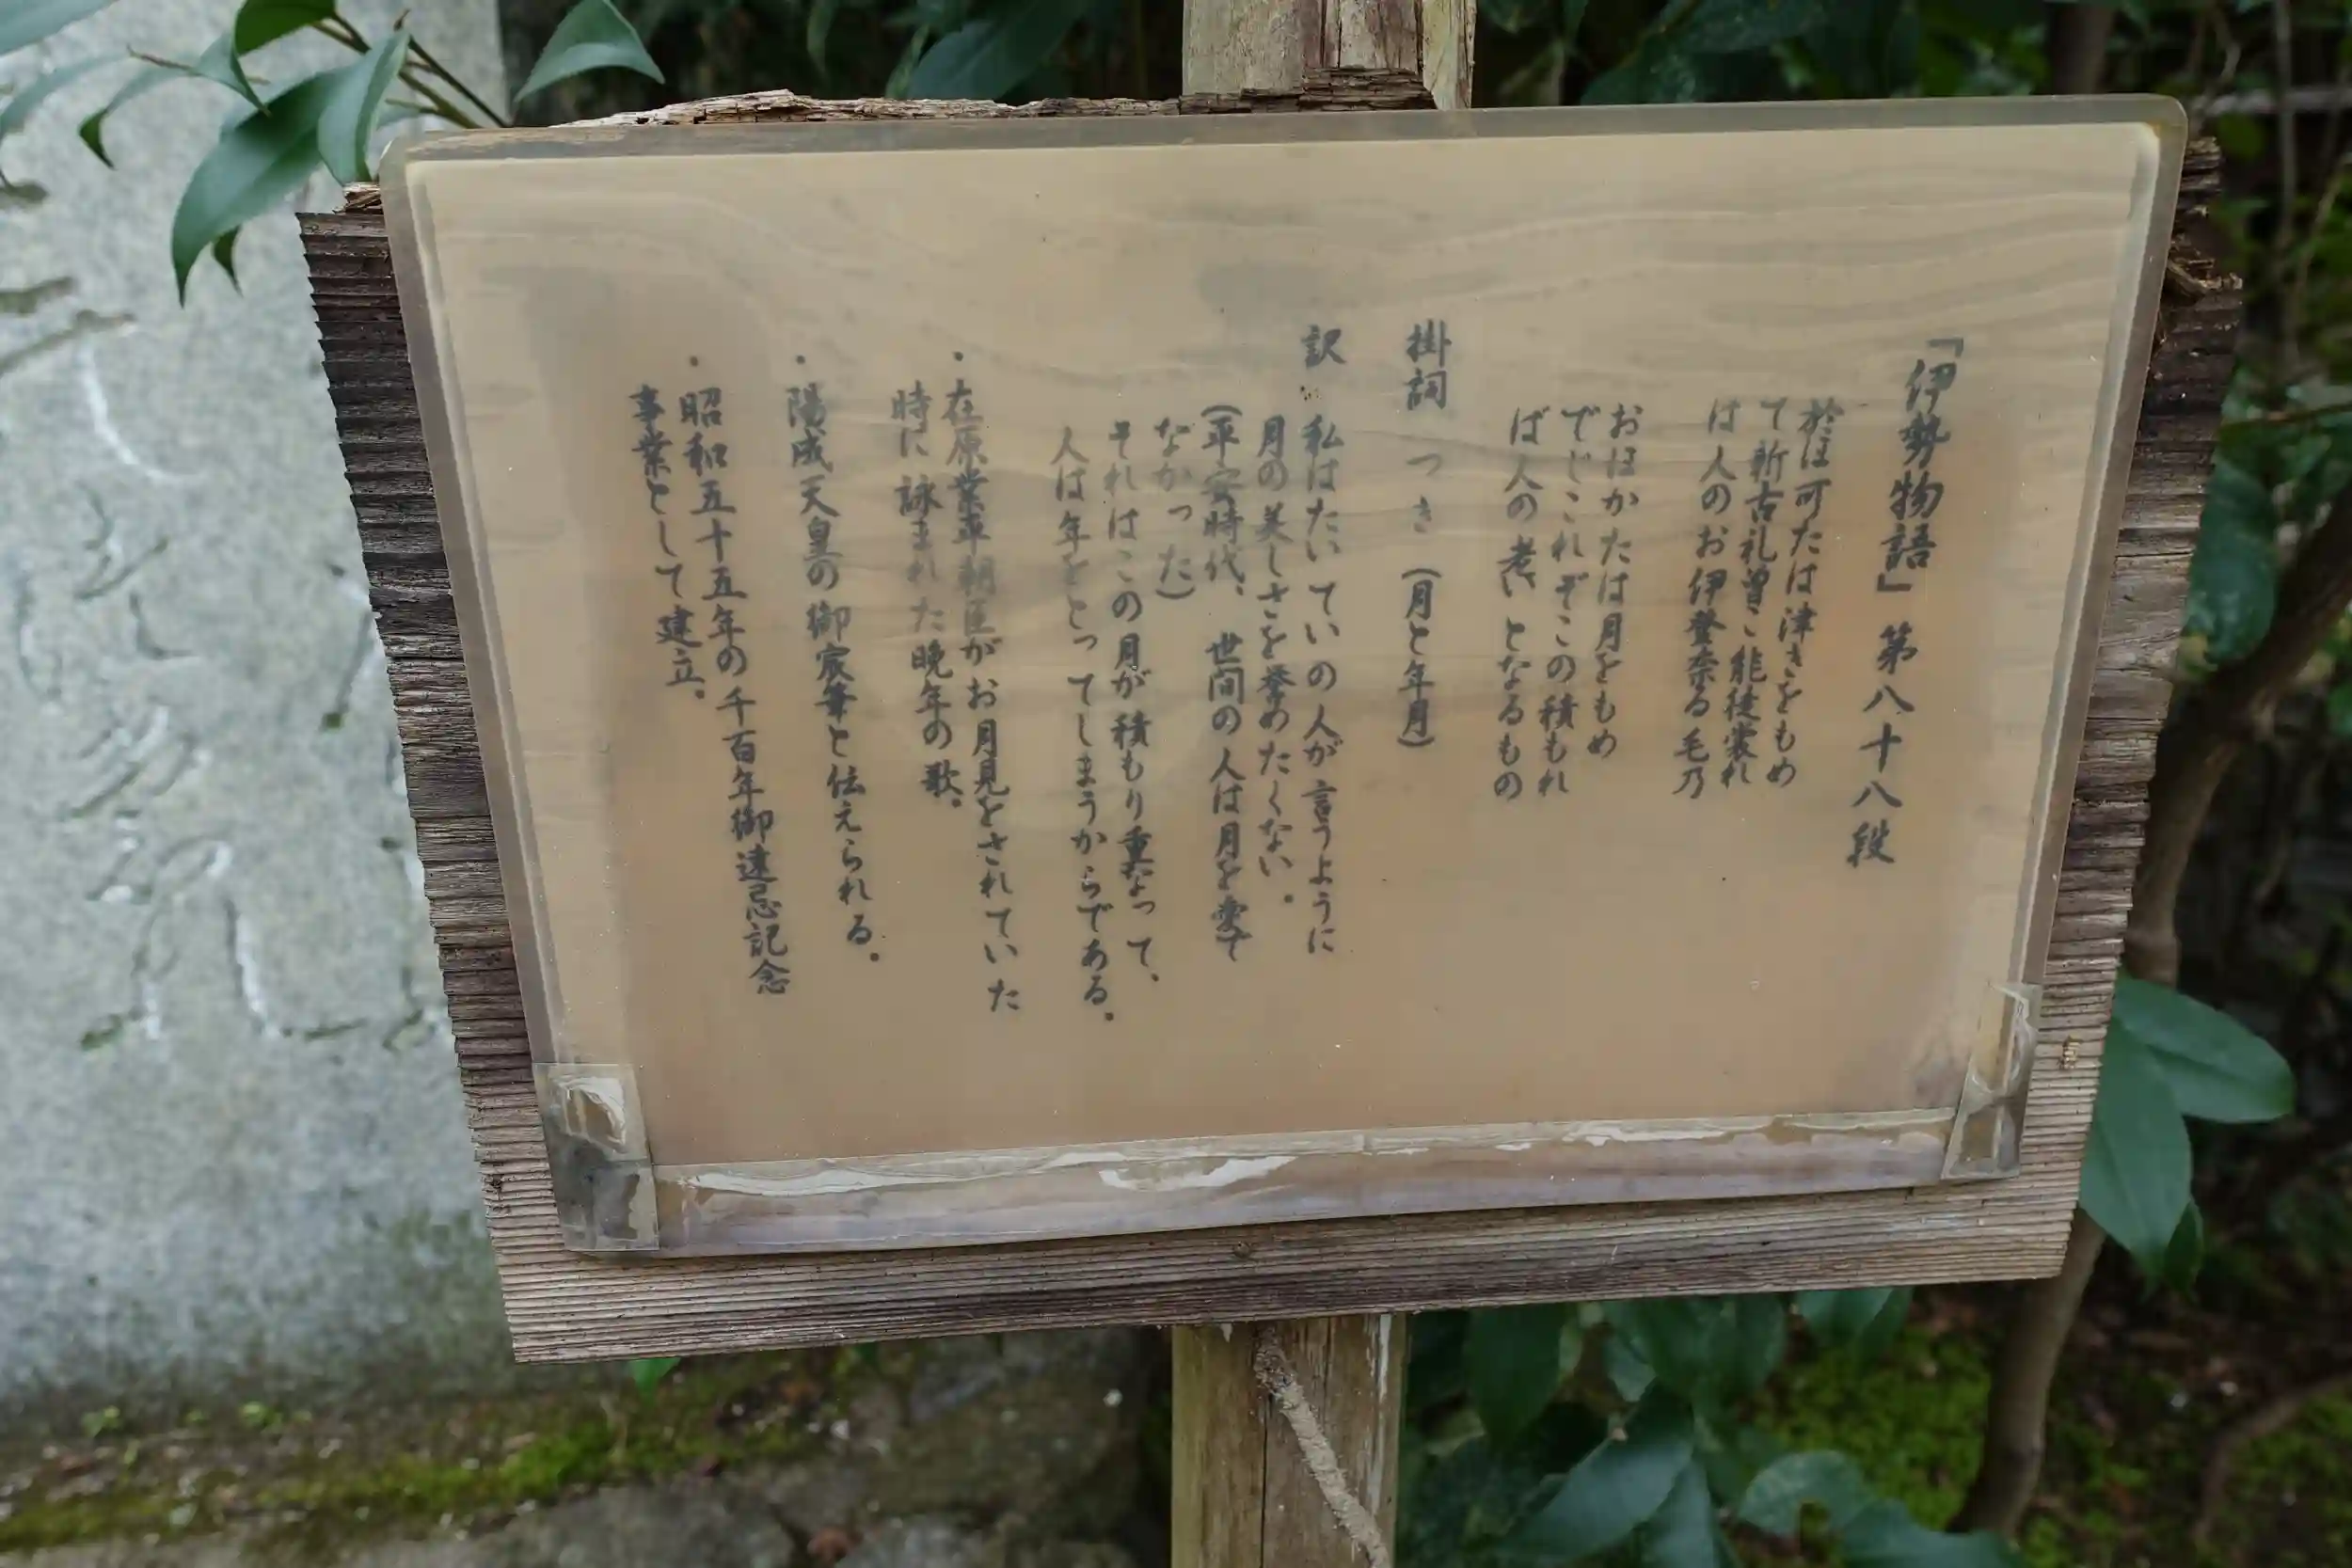 「伊勢物語」第八十八段
於ほ可たは津きをもめ
て新古礼曽こ能徒裳れ
は人のお伊登奈る毛乃
おほかたは月をもめ
でじこれぞこの積もれ
ば人の老いとなるもの
掛詞 つき（月と年月）
訳 私はたいていの人が言うように
月の美しさを誉めたくない。
（平安時代、世間の人は月を愛で
なかった）
それはこの月が積もり重なって、
人は年をとってしまうからである。
・在原業平朝臣がお月見をされていた
時に詠まれた晩年の歌。
・陽成天皇の御宸筆と伝えられる。
・昭和五十五年の千百年御遠忌記念
事業として建立。